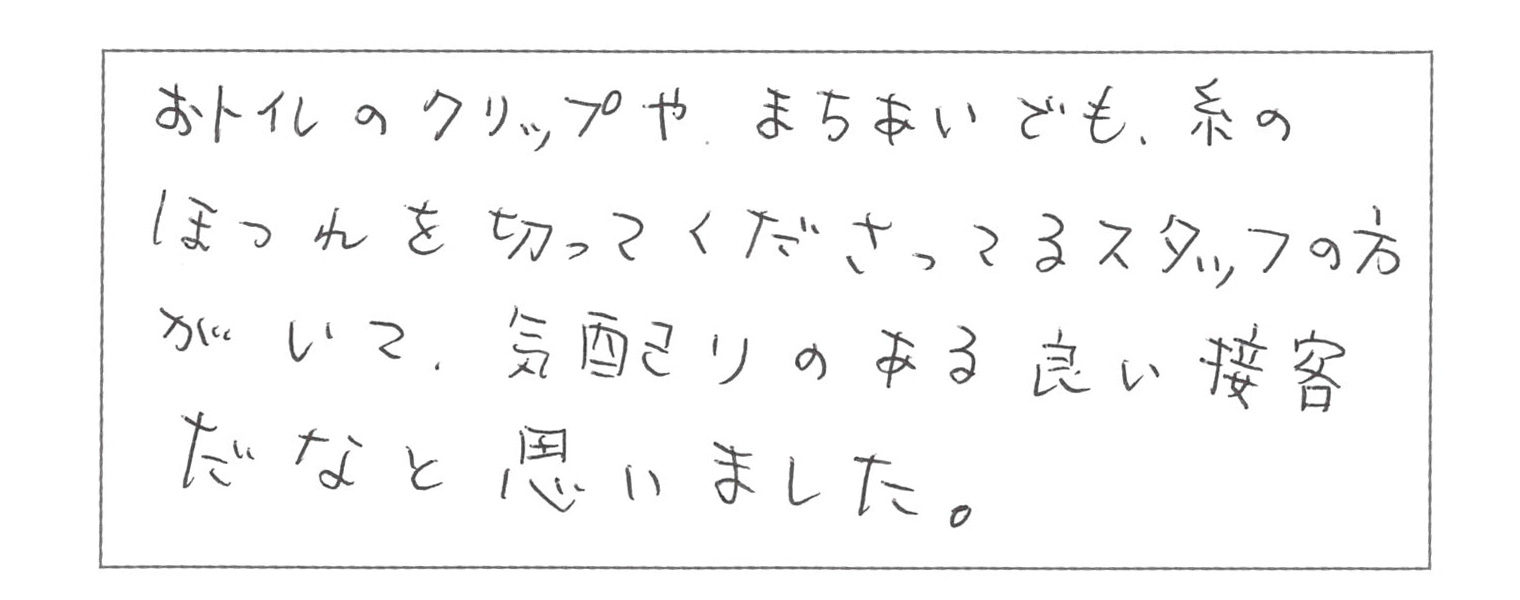 おトイレのクリップや、まちあいでも、糸の
ほつれを切ってくださってるスタッフの方
がいて、気配りのある良い接客
だなと思いました。